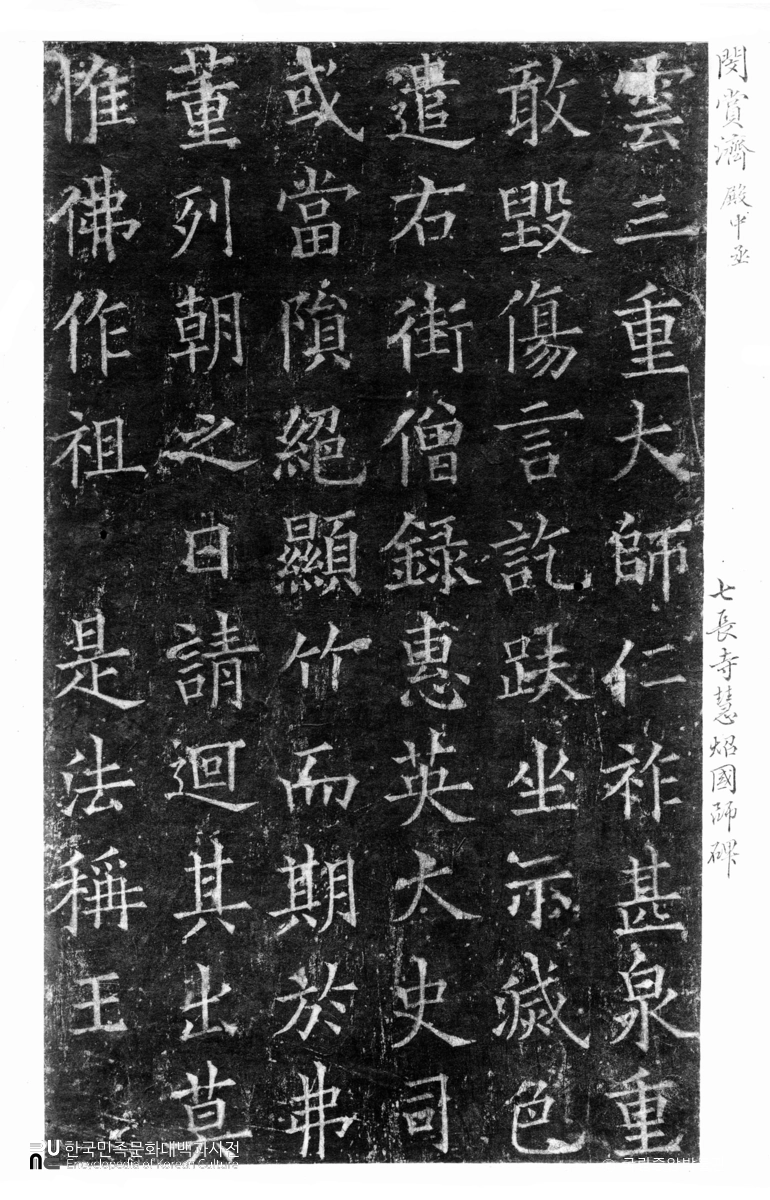 閔賞濟 殿中丞
七長寺慧炤國師碑
雲三重大師仁祚甚泉重
敢毀傷言訖趺坐示滅色
遣右街僧錄惠英大史司
或當隕絕顯竹而期於弗
董列朝之日請迴其出
惟佛作祖 是法稱王
한국민족문화대백과사전
Encyclopedia of Korean Culture